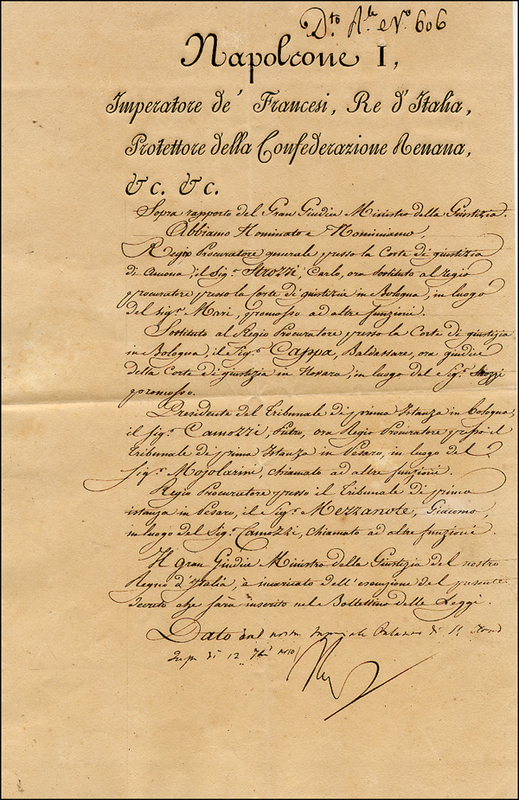 D.to A.le N.o 606
Napoleone I,
Imperatore de' Francesi, Re d'Italia,
Protettore della Confederazione Renana,
&c. &c.
Sopra rapporto del Gran Giudice Ministro della Giustizia.
Abbiamo Nominato e Nominiamo,
Regio Procuratore generale presso la Corte di giustizia
di Ancona, il Sig.r Strozzi, Carlo, ora Sostituto al regio
procuratore presso la Corte di giustizia in Bologna, in luogo
del sig.r Mari, promosso ad altre funzioni.
Sostituto al Regio Procuratore presso la Corte di giustizia
in Bologna, il Sig.r Cappa, Baldassare, ora giudice
della Corte di giustizia in Novara, in luogo del Sig.r Strozzi
promosso.
Presidente del Tribunale di prima Istanza in Bologna,
il Sig.r Camozzi, Pietro, ora Regio Procuratore presso il
Tribunale di prima Istanza in Pesaro, in luogo del
Sig.r Mojolarini, chiamato ad altre funzioni.
Regio Procuratore presso il Tribunale di prima
istanza in Pesaro, il Sig.r Mezzanote, Giacomo,
in luogo del Sig.r Camozzi, chiamato ad altre funzioni.
Il gran Giudice Ministro della Giustizia del nostro
Regno d'Italia, è incaricato dell'esecuzione del presente
Decreto che sarà inserito nel Bollettino delle Leggi.
Dato dal nostro Imperiale Palazzo di St Cloud
di 12 1810